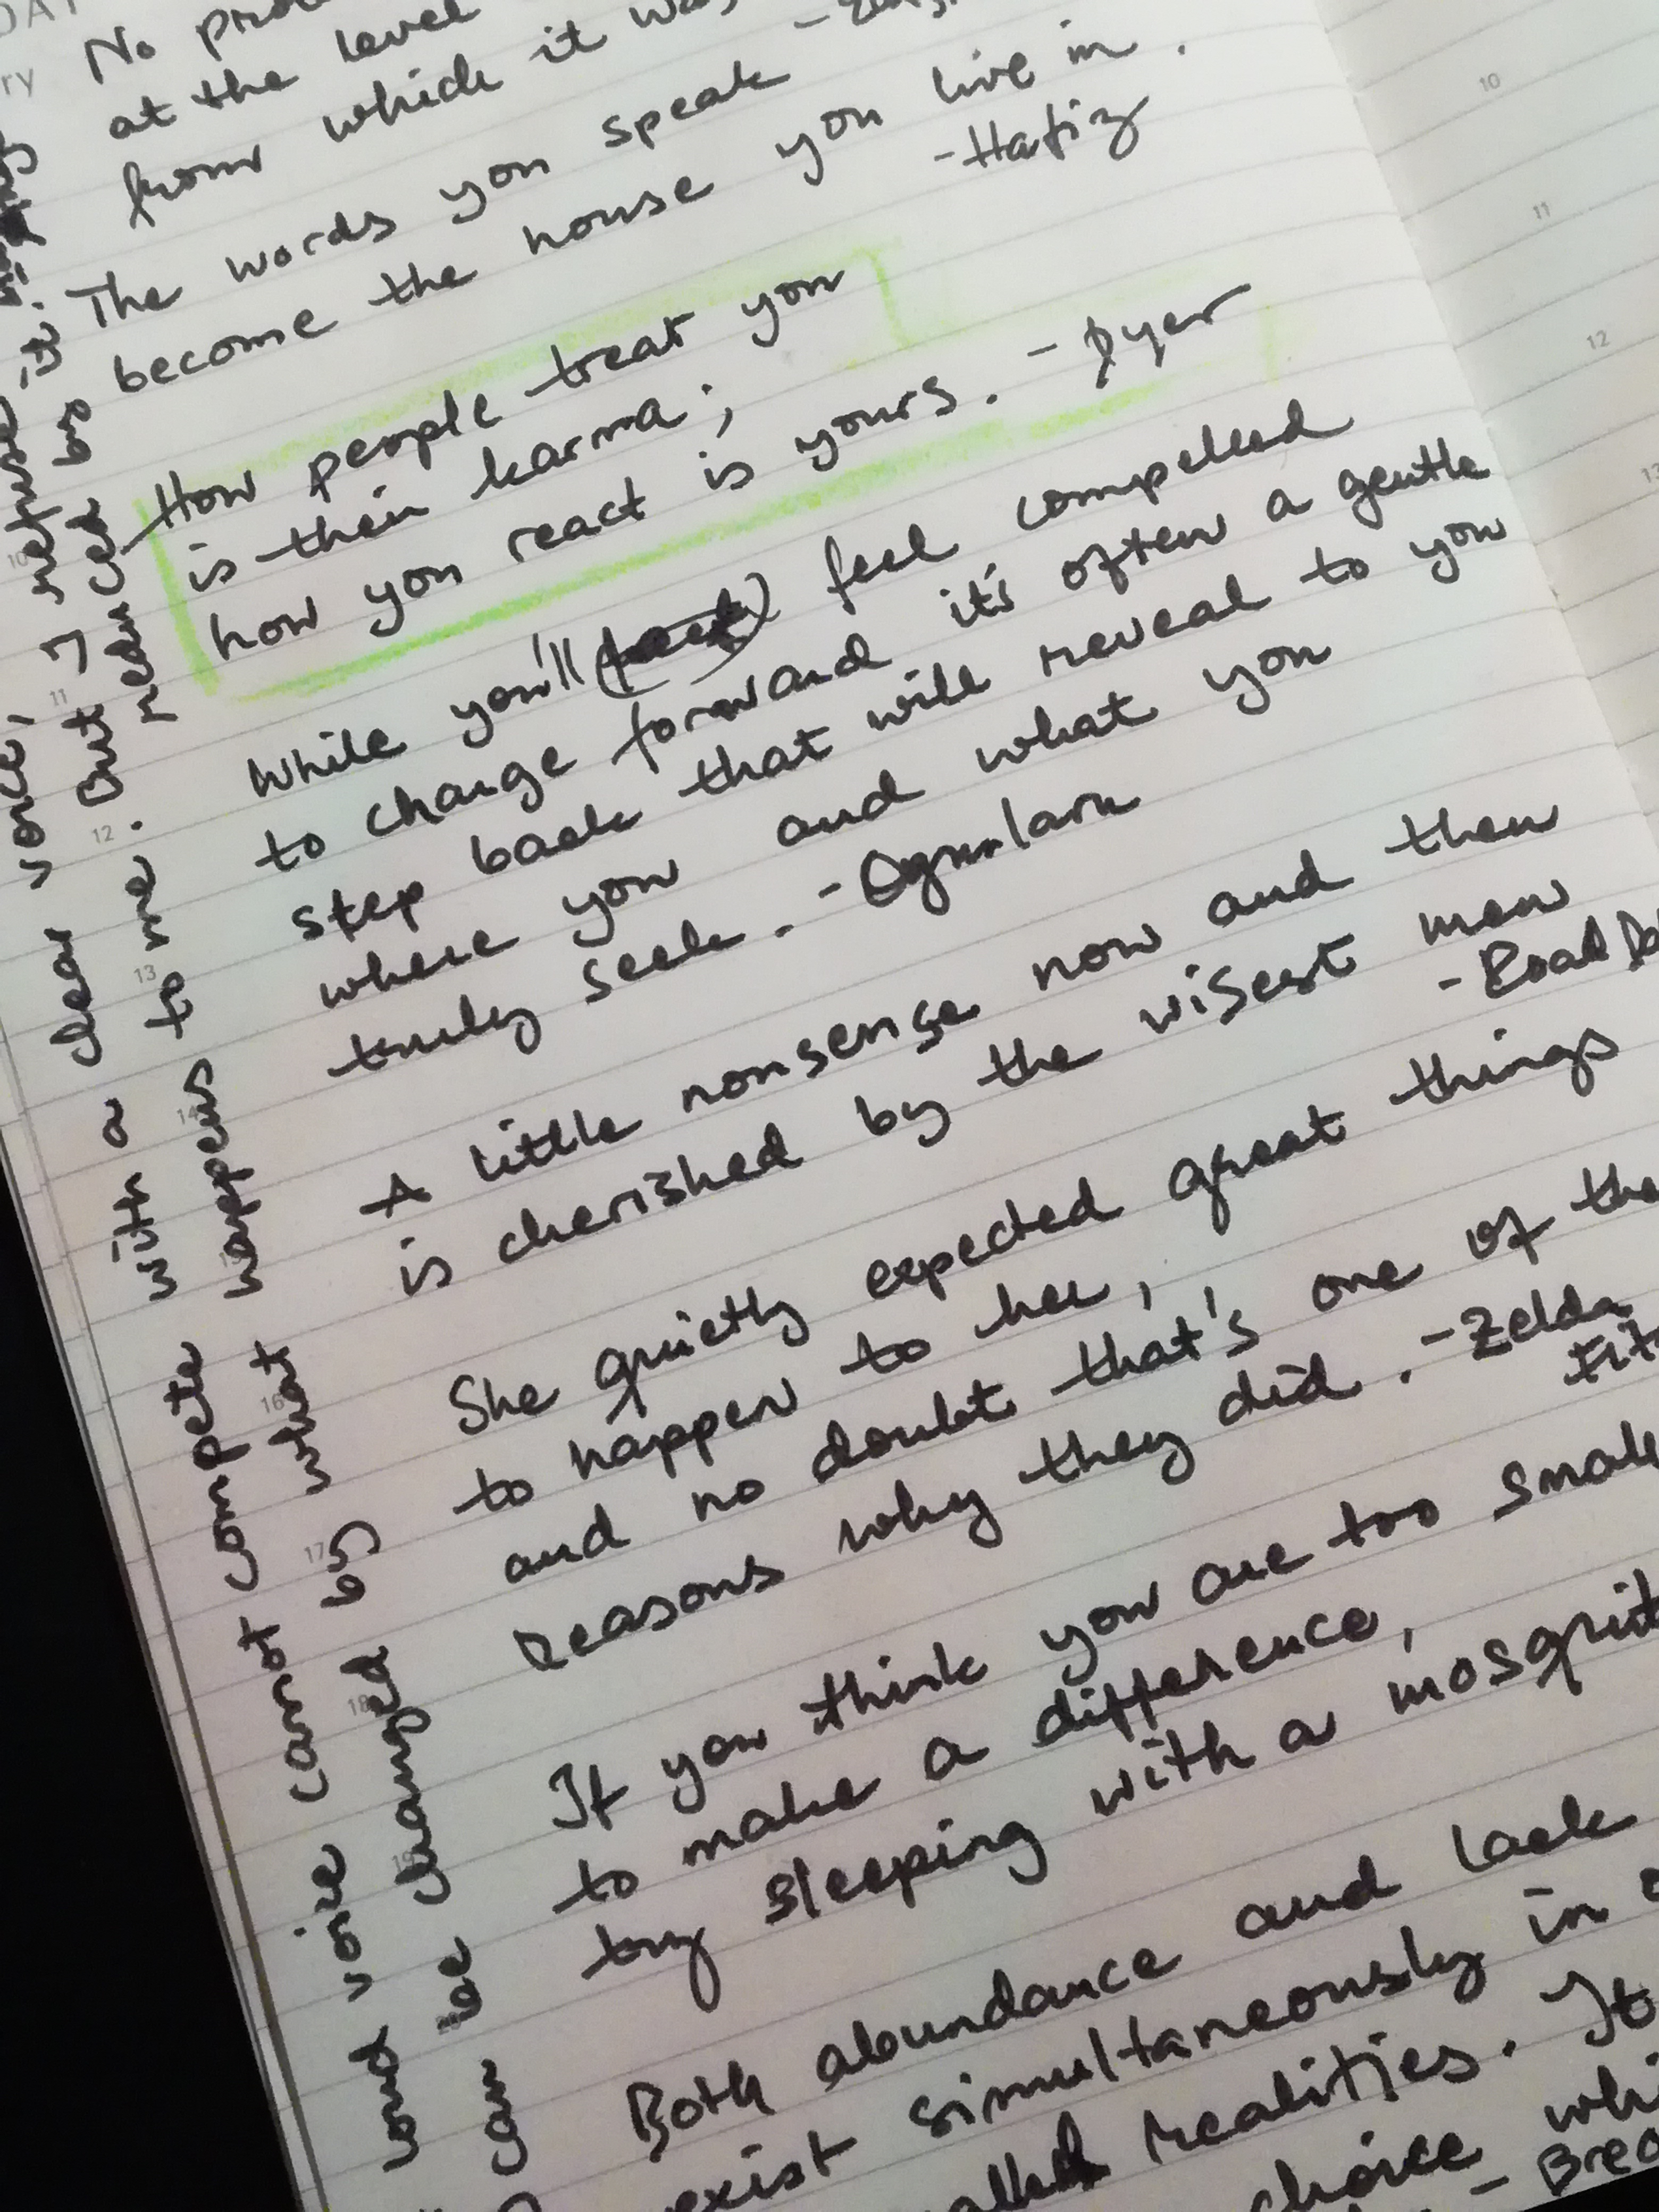 No
at the level
from which it was
The words you speak
become the house you live in.
-Hafiz
How people treat you
is their karma;
how you react is yours. - Dyer
While you'll feel compelled
to change forward it's often a gentle
step back that will reveal to you
where you and what you
truly seek. -
A little nonsense now and then
is cherished by the wisest men
-Roald
She quietly expected great things
to happen to her,
and no doubt that's one of the
reasons why they did. -Zelda
If you think you are too small
to make a difference,
try sleeping with a
Both abundance and lack
exist simultaneously in
realities. It
choice
loud voice cannot compete with a clear voice,
can be changed by what happens to me. But I refuse
reduced by it.
10
11
12
13
11
12
13
16
17
18